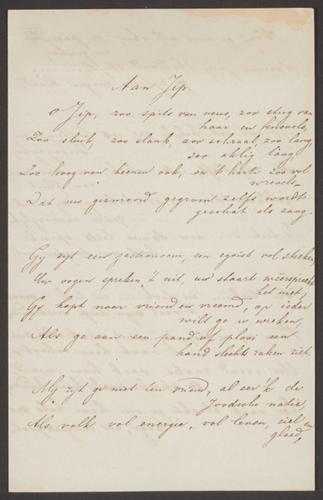 Aan Jip.
O Jip, zoo spits van neus, zoo stug van
haar en knevels,
Zoo sluik, zoo slank, zoo schraal, zoo lang,
zoo aklig lang
Zoo hoog van beenen ook, en 't hart zoo vol
wrevels,
Dat uw gegrom zelfs wordt
geschat als zang.
Gy zyt een gastronoom, een egoïst vol
Uw oogen spreken 't uit, uw staart weerspreekt
het niet,
Gy hapt naar vriend en vreemd, op ieder
wilt ge u wreken,
Als ge aan een pand of plooi een
hand slechts raken ziet.
My zyt ge niet een vriend, al eer 'k de
Joodsche natie,
Als volk vol energie, vol leven, ziel en
gloed,